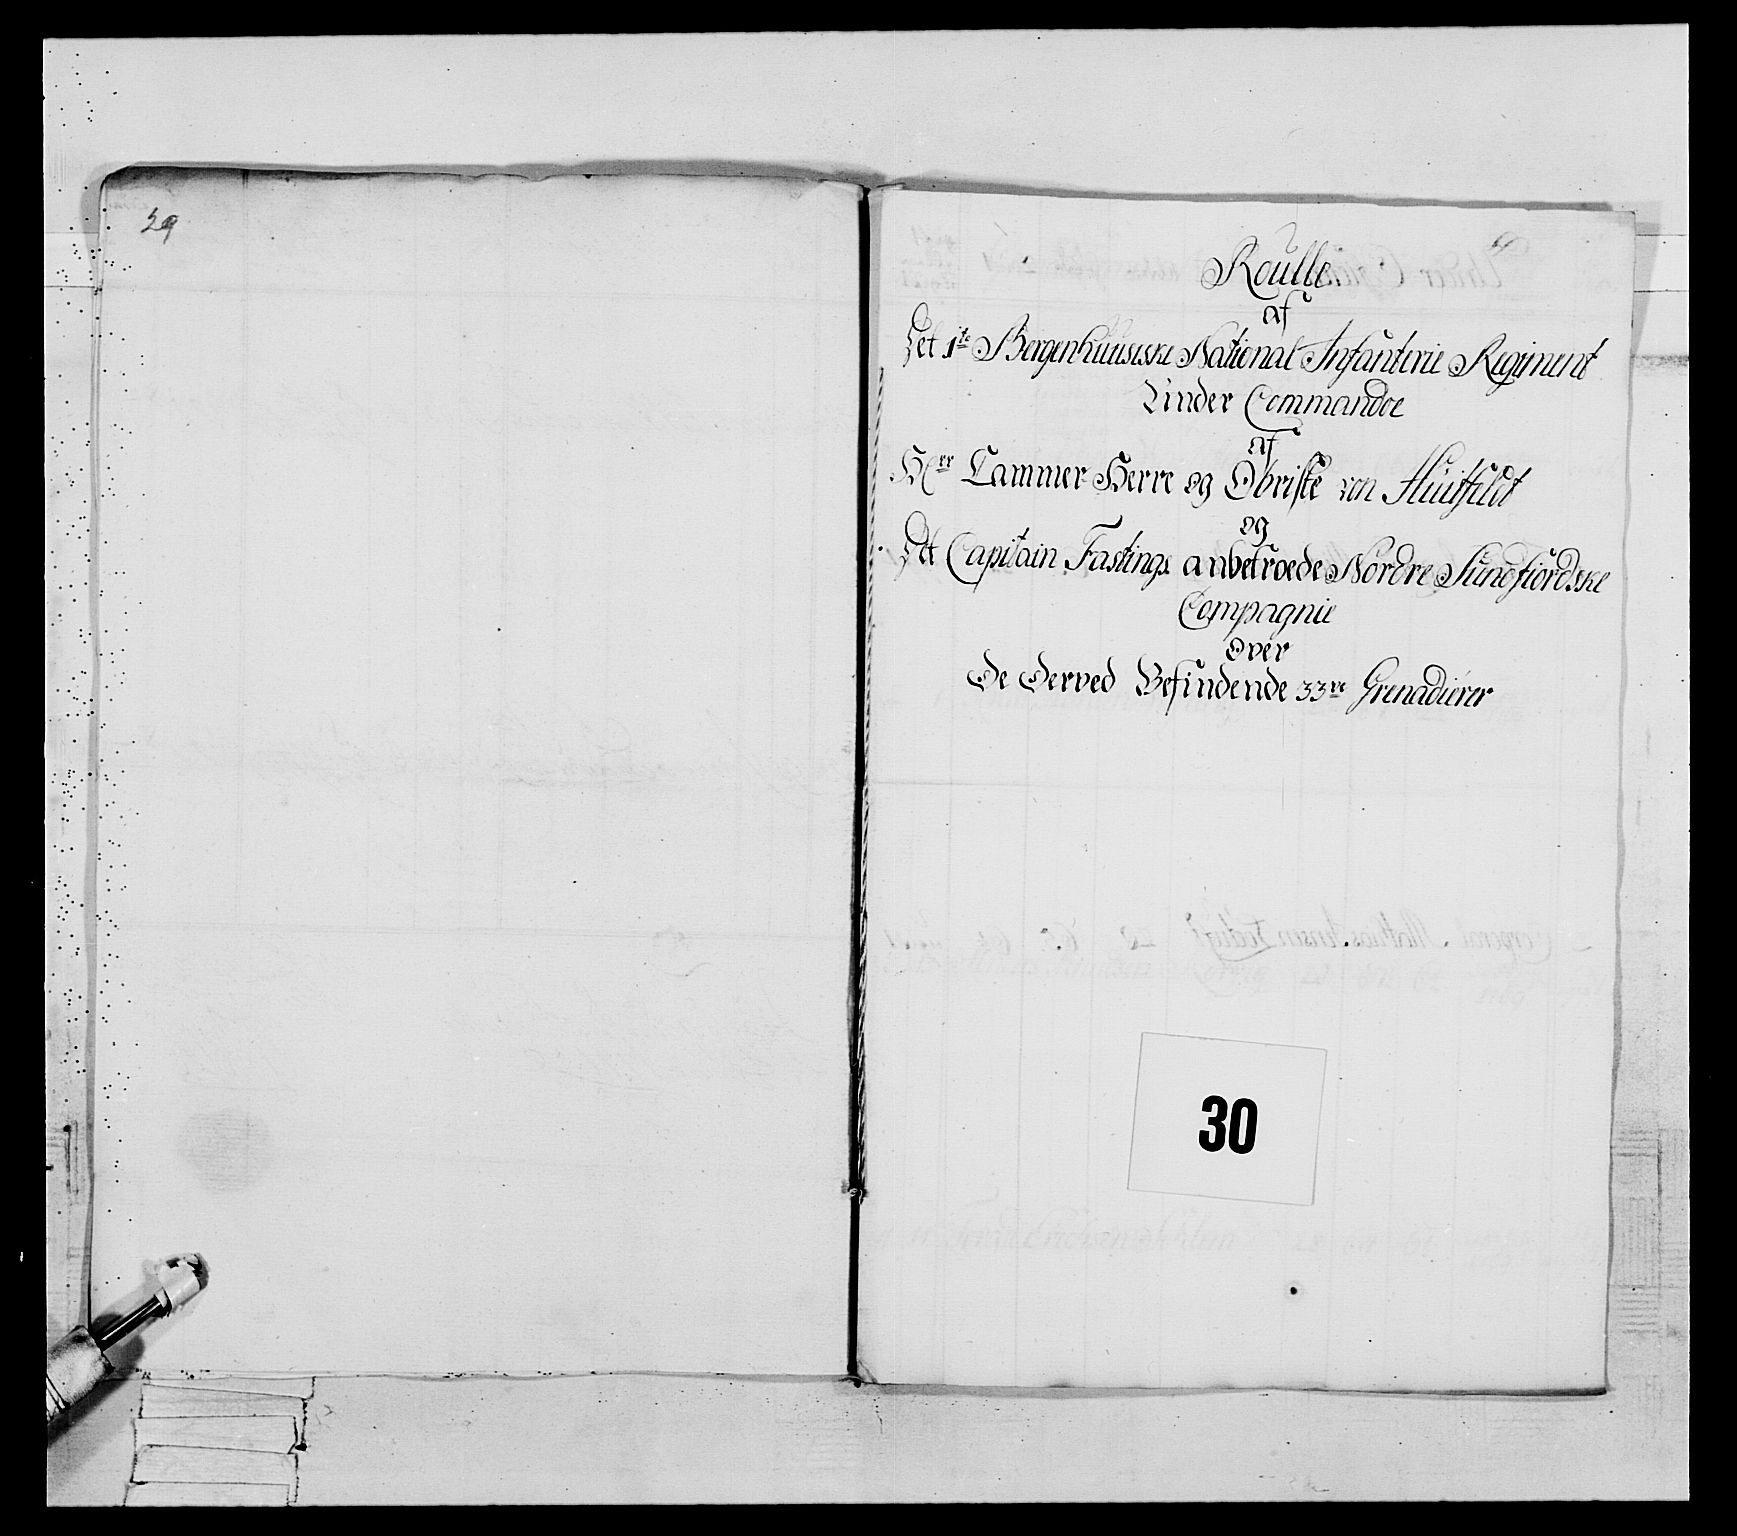 29
Roulle
af
Det 1te Bergenhuusiske National Infanterie Regiment
Under Commandoe
af
Hrr Cammer Herre og Obriste von Huitfeldt
og
Det Capitain Fastings anbetroede Nordre Sundfiordske
Compagnie
over
De Derved Befindende 33ve Grenadierer
30